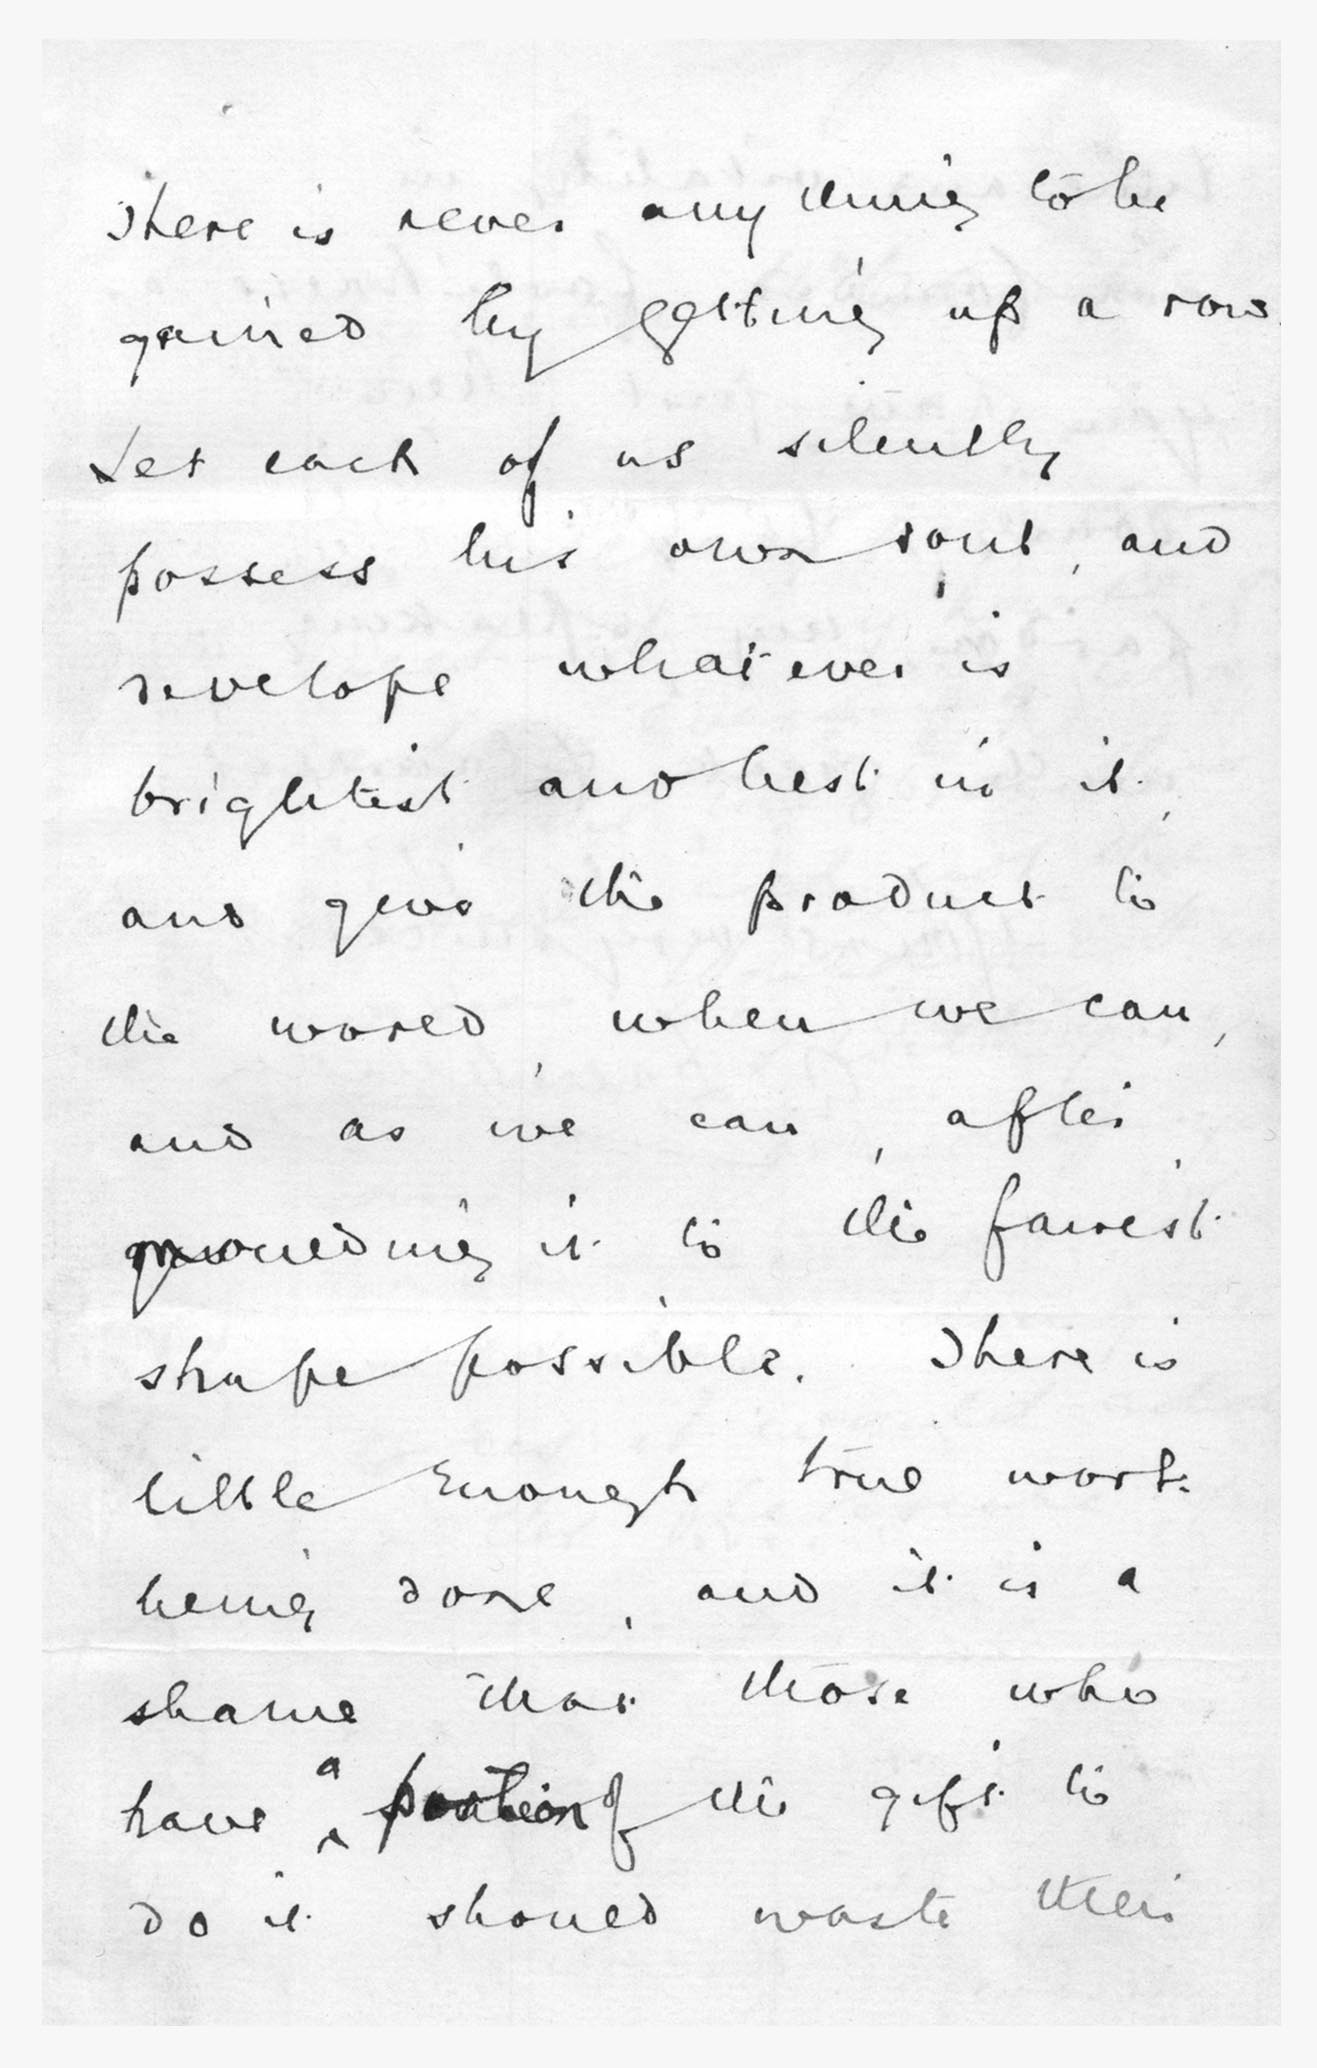 There is never anything to be
gained by getting up a row.
Let each of us silently
possess his own soul, and
develope whatever is
brightest and best in it,
and give the product to
the world, when we can,
and as we can, after
moulding it to the fairest
shape possible. There is
little enough true work
being done, and it is a
shame that those who
have a portion of the gift to
do it should waste their